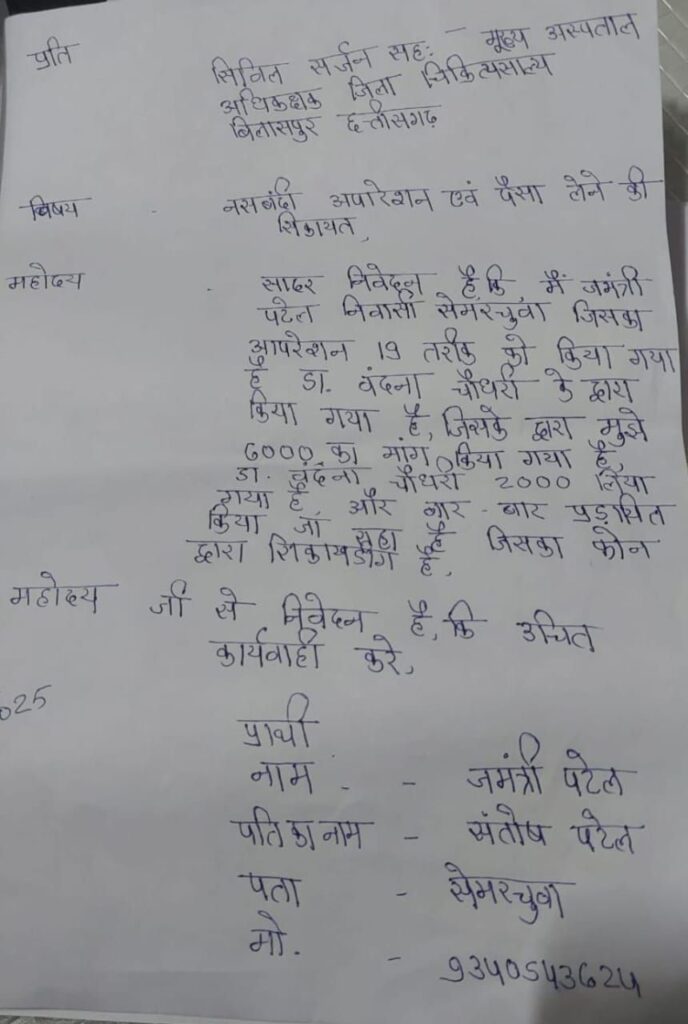 प्रति
सिविल सर्जन सह: - मूख्य अस्पताल
अधिकक्षक जिला चिकित्यसाल्य
बिलासपुर छत्तीसगढ़
बिषय - नसबंदी अपारेशन एवं पैसा लेने की
शिकायत,
महोदय - सादर निवेदन है, कि, मैं जमंत्री
पटेल निवासी सेमरचुवा जिसका
आपरेशन 19 तरीक को किया गया
है डा. वंदना चौधरी के द्वारा
किया गया है, जिसके द्वारा मुझे
6000 का मांग किया गया है,
डा. वंदना चौधरी 2000 लिया
गया है, और बार - बार प्रड़ाचित
किया जा रहा है जिसका फोन
द्वारा रिकायडींग है,
महोदय जी से निवेदन है, कि उचित
कार्यवाही करे,
025
प्रार्थी
नाम - - जमंत्री पटेल
पति का नाम - संतोष पटेल
पता - सेमरचुवा
मो. - 9340543624